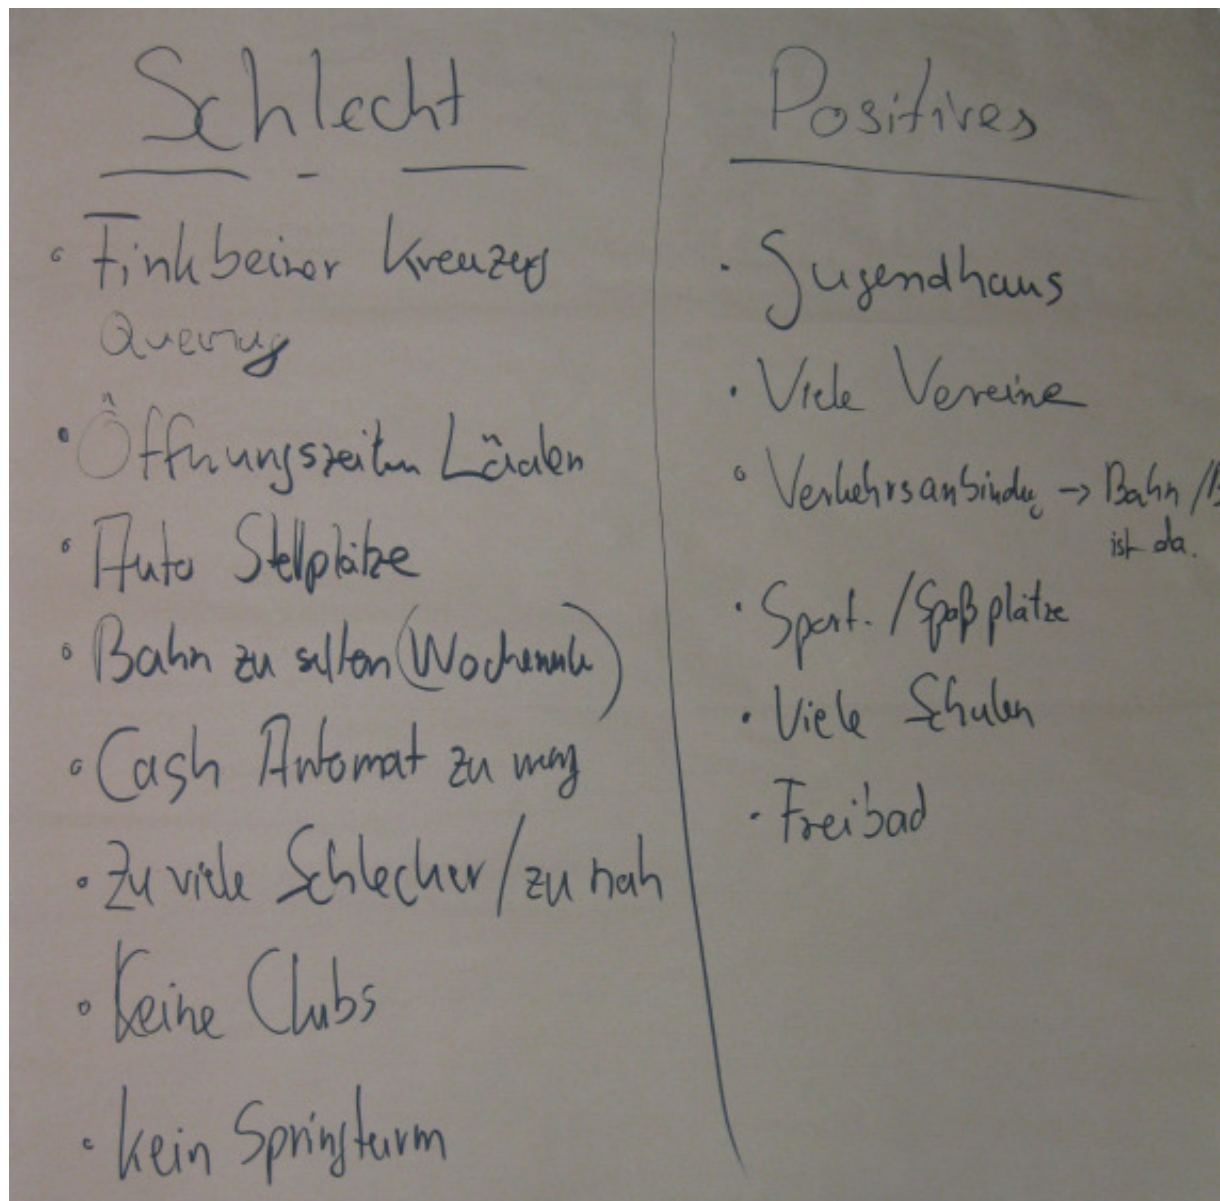 Schlecht
Finkbeiner Kreuzung
Querung
Öffnungszeiten Läden
Auto Stellplätze
Bahn zu selten (Wochenende)
Cash Automat zu wenig
Zu viele Schlecker / zu nah
Keine Clubs
kein Sprungturm
Positives
Jugendhaus
Viele Vereine
Verkehrsanbindung → Bahn /
ist da.
Sport- / Spaßplätze
Viele Schulen
Freibad